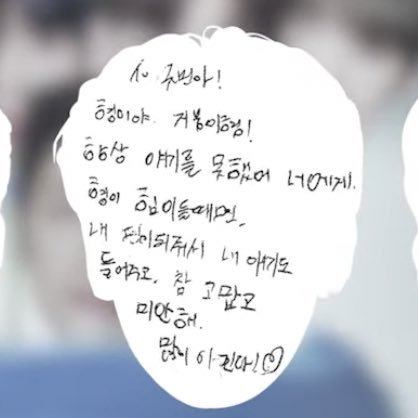 To 주빈아!
형이야. 거봉이형!
항상 얘기를 못했어 너에게.
형이 힘이들때면,
내 편이되줘서 내 얘기도
들어주고, 참 고맙고
미안해.
많이 아낀다!